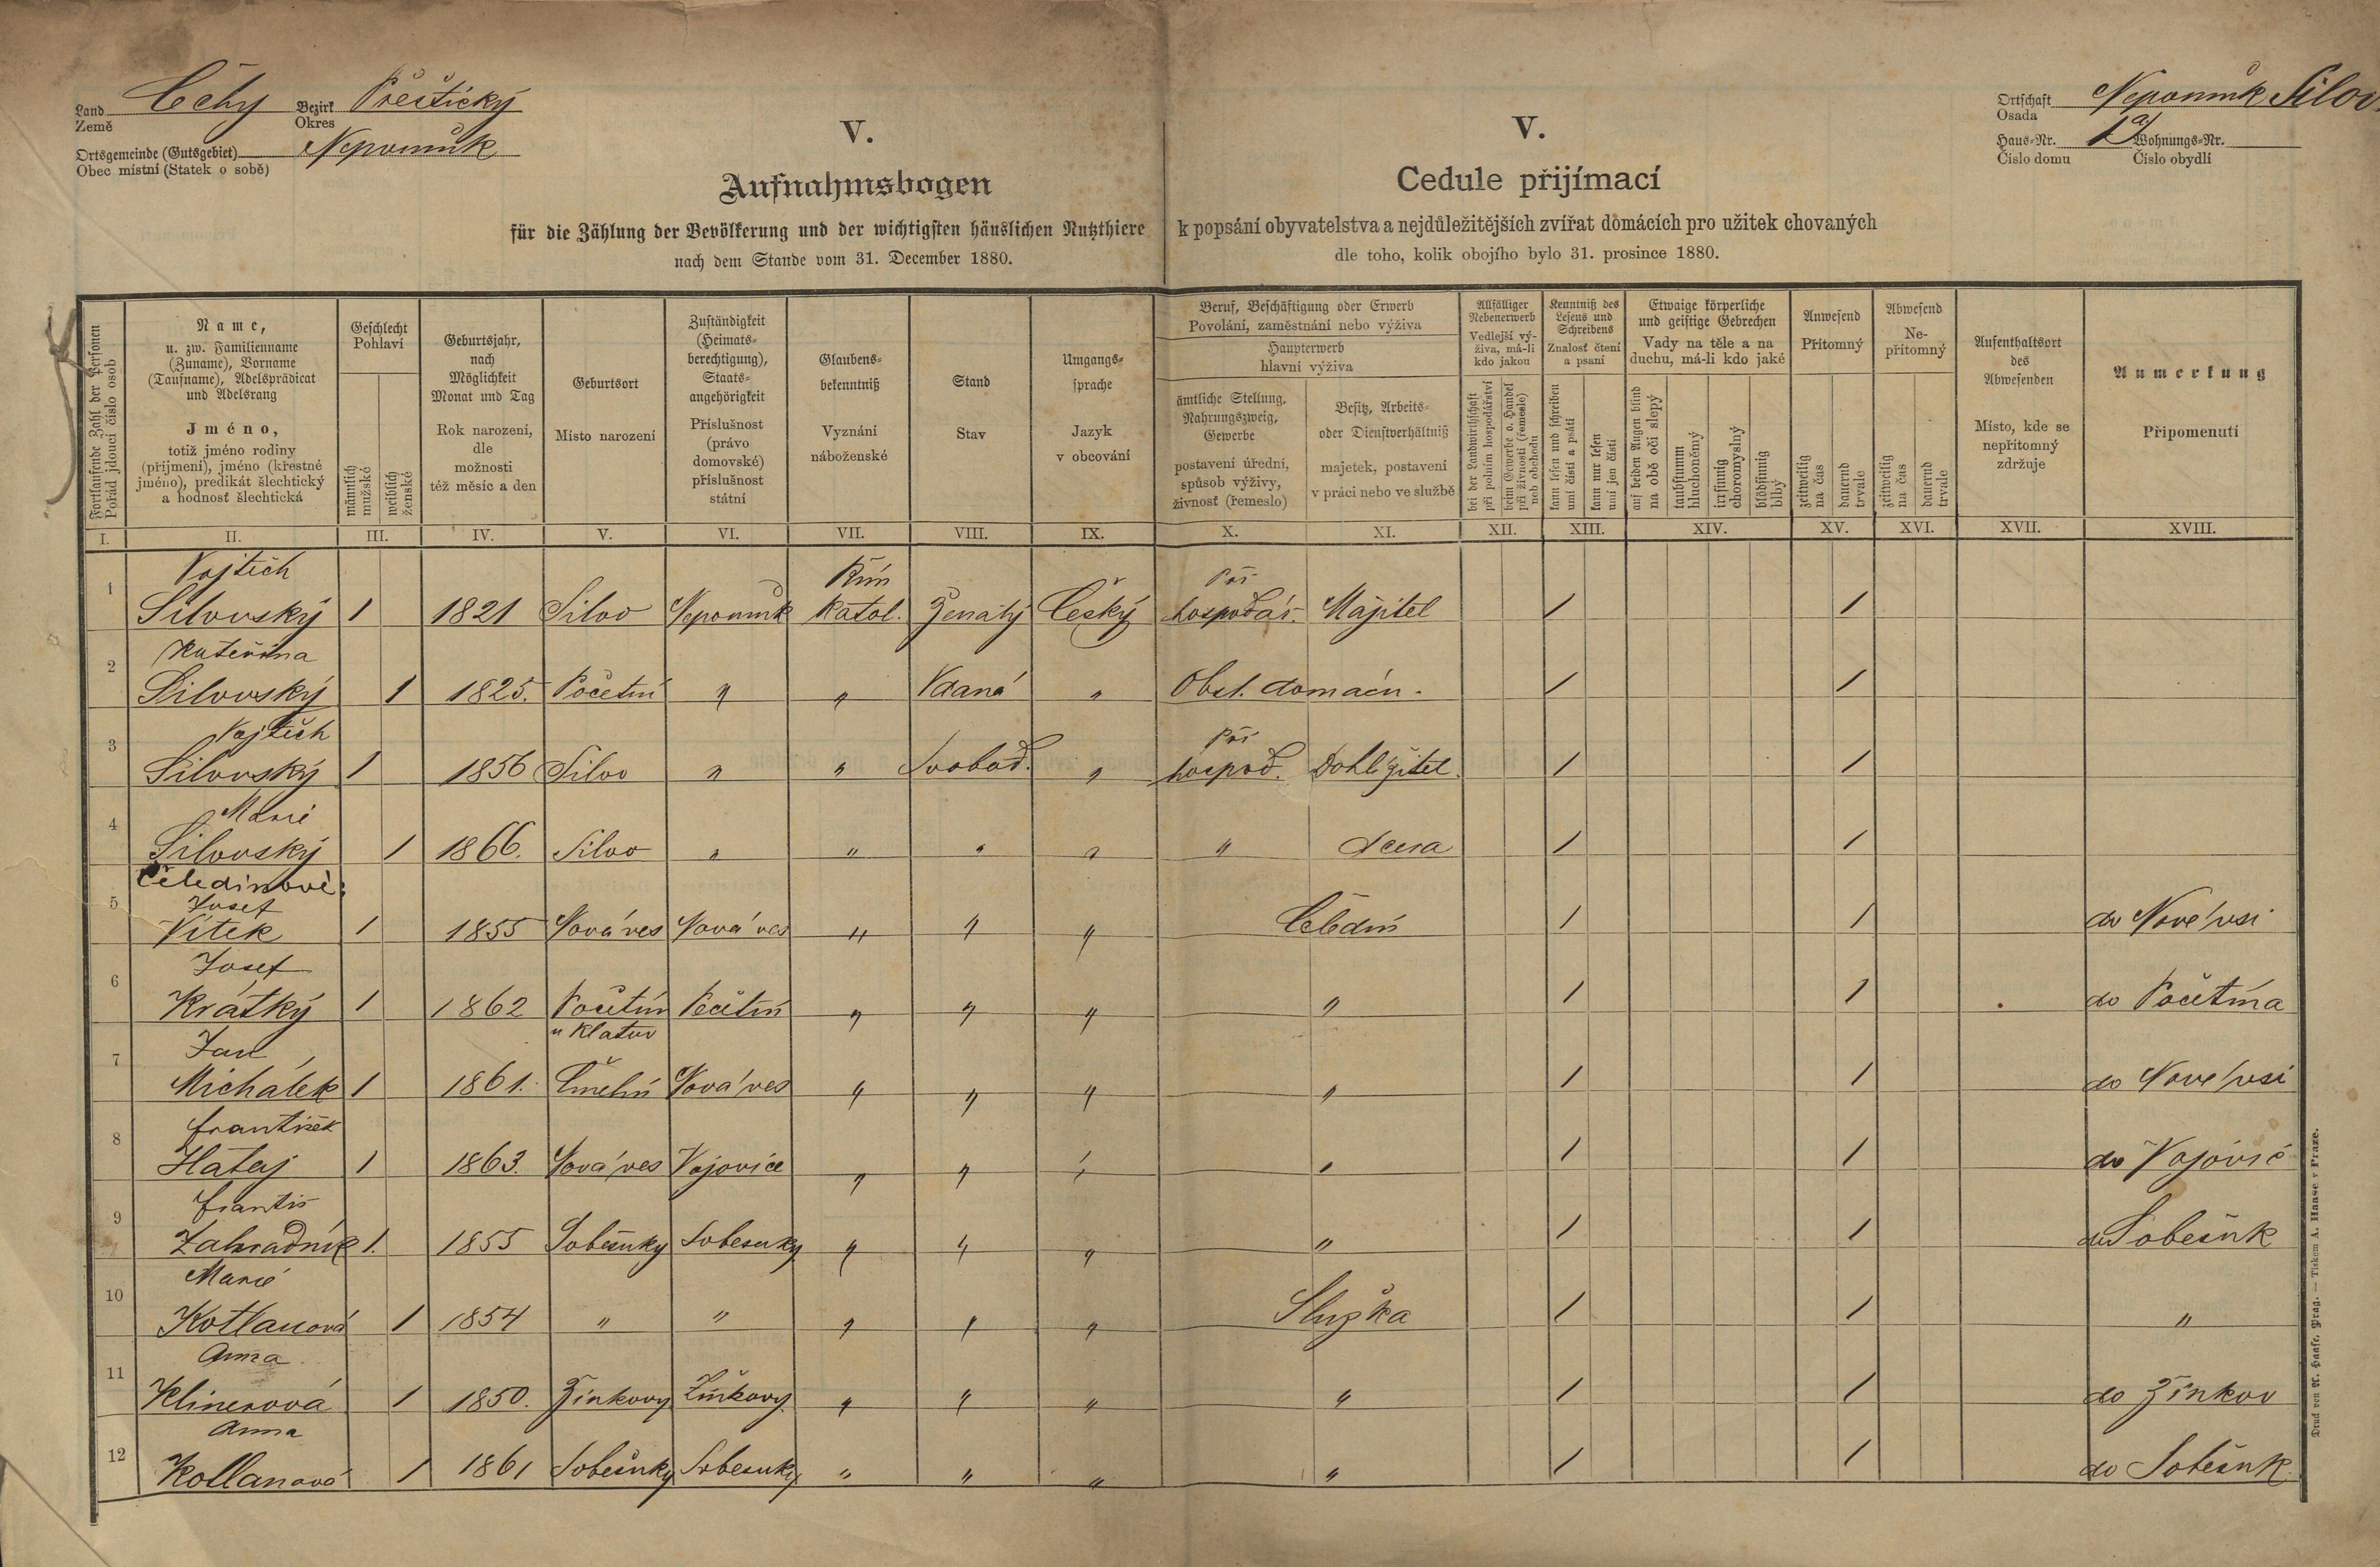 Land Čechy Bezirk Přeštický
Země Okres
Ortsgemeinde (Gutsgebiet) Nepomuk
Obec místní (Statek o sobě)
Ortschaft Nepomuk Silov
Osada
Haus-Nr. Wohnungs-Nr.
Číslo domu Číslo obydlí
V.
Aufnahmsbogen
für die Zählung der Bevölkerung und der wichtigsten häuslichen Nutzthiere
nach dem Stande vom 31. December 1880.
V.
Cedule přijímací
k popsání obyvatelstva a nejdůležitějších zvířat domácích pro užitek chovaných
dle toho, kolik obojího bylo 31. prosince 1880.
Fortlaufende Zahl der Personen
Pořád jdoucí číslo osob
Name,
u. zw. Familienname
(Zuname), Vorname
(Taufname), Adelsprädicat
und Adelsrang
Jméno,
totiž jméno rodiny
(příjmení), jméno (křestné
jméno), predikát šlechtický
a hodnosť šlechtická
Geschlecht
Pohlaví
männlich
mužské
weiblich
ženské
Geburtsjahr,
nach
Möglichkeit
Monat und Tag
Rok narození,
dle
možnosti
též měsíc a den
Geburtsort
Místo narození
Zuständigkeit
(Heimats-
berechtigung),
Staats-
angehörigkeit
Příslušnost
(právo
domovské)
příslušnost
státní
Glaubens-
bekenntniß
Vyznání
náboženské
Stand
Stav
Umgangs-
sprache
Jazyk
v obcování
Beruf, Beschäftigung oder Erwerb
Povolání, zaměstnání nebo výživa
Haupterwerb
hlavní výživa
ämtliche Stellung,
Nahrungszweig,
Gewerbe
postavení úřední,
spůsob výživy,
živnosť (řemeslo)
Besitz, Arbeits-
oder Dienstverhältniß
majetek, postavení
v práci nebo ve službě
Allfälliger
Nebenerwerb
Vedlejší vý-
živa, má-li
kdo jakou
bei der Landwirthschaft
při polním hospodářství
beim Gewerbe o. Handel
při živnosti (řemeslo)
neb obchodu
Kenntniß des
Lesens und
Schreibens
Znalosť čtení
a psaní
kann lesen und schreiben
umí čísti a psáti
kann nur lesen
umí jen čísti
Etwaige körperliche
und geistige Gebrechen
Vady na těle a na
duchu, má-li kdo jaké
auf beiden Augen blind
na obě oči slepý
taubstumm
hluchoněmý
irrsinnig
choromyslný
blödsinnig
blbý
Anwesend
Přítomný
zeitweilig
na čas
dauernd
trvale
Abwesend
Ne-
přítomný
zeitweilig
na čas
dauernd
trvale
Aufenthaltsort
des
Abwesenden
Místo, kde se
nepřítomný
zdržuje
Anmerkung
Připomenutí
I. II. III. IV. V. VI. VII. VIII. IX. X. XI. XII. XIII. XIV. XV. XVI. XVII. XVIII.
Vojtěch Řím Při
1 Silovský 1 1821 Silov Nepomuk katol. Ženatý Český hospodář. Majitel / /
Kateřina
2 Silovský 1 1825. Početní " " Vdaná " Obst. domácn. / /
Vojtěch Při
3 Silovský 1 1856 Silov " " Svobod. " hospod. Dohlížitel. / /
Marie
4 Silovský 1 1866. Silov " " " " " dcera / /
Čeledínové:
Josef
5 Vítek 1 1855 Nová ves Nová ves " " " Čeledín / / do Nové vsi
Josef
6 Krátký 1 1862 Početín Početín " " " " / / do Početína
Jan u Klatov
7 Michálek 1 1861. Nová ves " " " " / / do Nové vsi
František
8 Hataj 1 1863. Nová ves Vojovice " " " " / / do Vojovic
Františ
9 Zahradník 1. 1855 Soběsuky Sobesuky " " " " / / do Soběsuk
Marie
10 Kotlanová 1 1854 " " " " " Služka / / "
Anna
11 Klinerová 1 1850. Žinkovy Žinkovy " " " " / / do Žinkov
Anna
12 Kotlanová 1 1861 Soběsuky Sobesuky " " " " / / do Soběsuk
Druck von A. Haase, Prag. — Tiskem A. Haase v Praze.